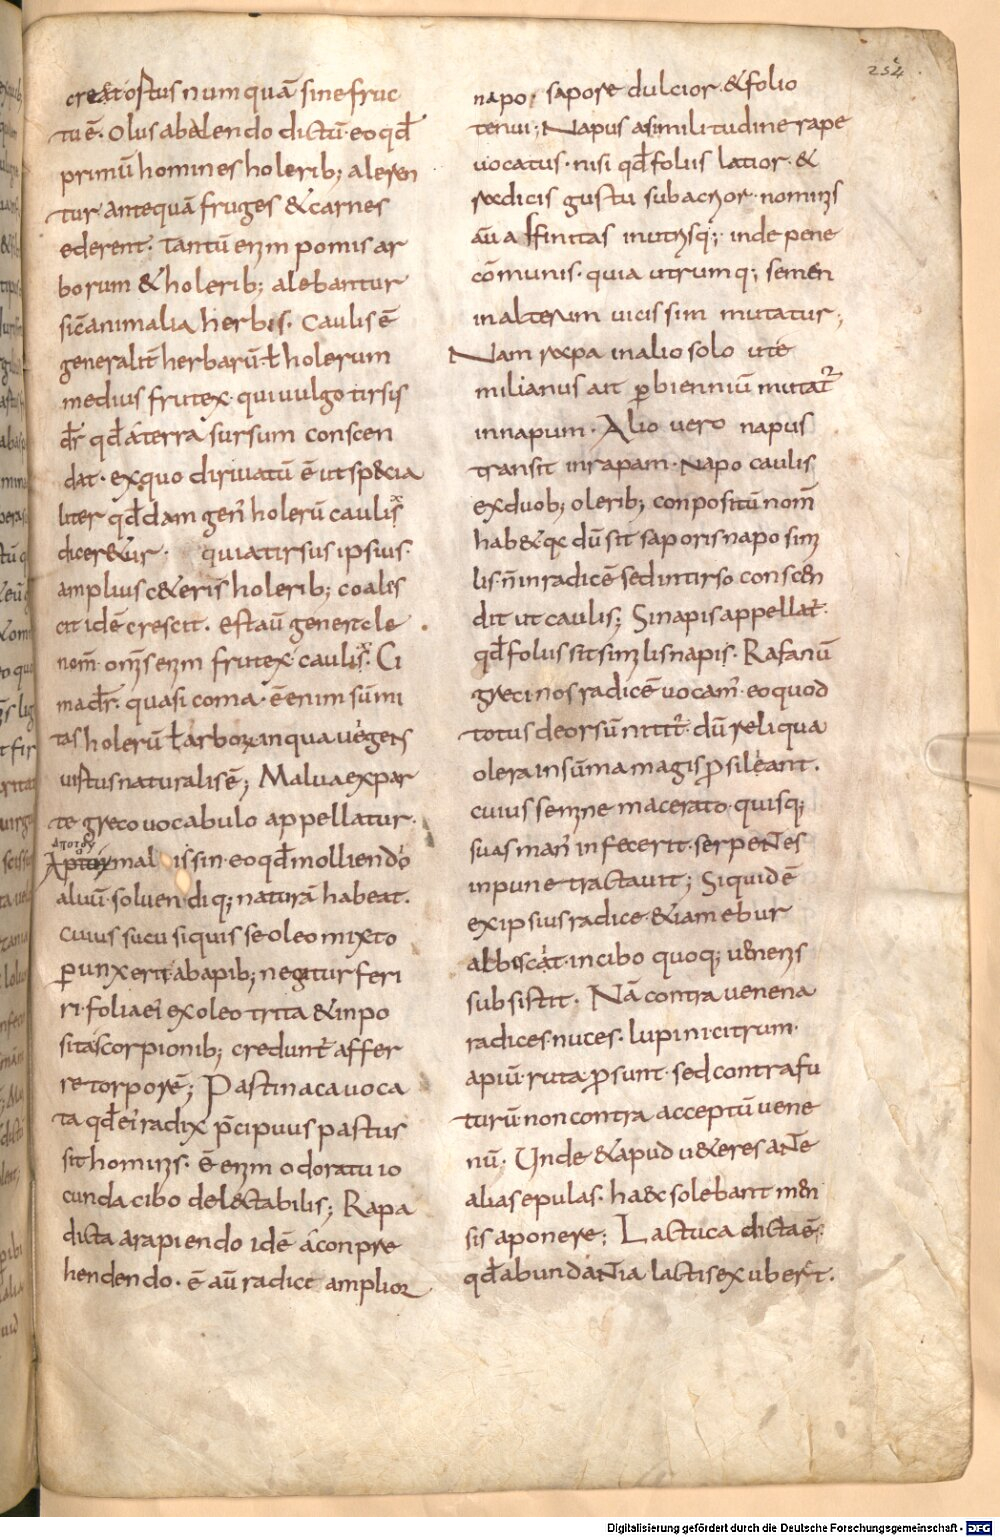 252
creat ostus numquā sine fruc
tu ē. Olus ab alendo dictū eo qđ
primū homines holerib; aleren
tur antequā fruges & carnes
ederent. Tantū enim pomis ar
borum & holerib; alebantur
sic animalia herbis. Caulis ē
generalit̄ herbarū ł holerum
medius frutex qui vulgo tirsis
dr̄ qđ a terra sursum conscen
dat. ex quo dirivatū ē ut sp&cia
liter qđdam gen̄ holerū caulis
dicer&ur. quia tirsus ipsius
amplius c&eris holerib; coales
cit idē crescit. Est aū generale
nom̄. omīs enim frutex caulis. Ci
ma dr̄. quasi coma. ē enim sūmi
tas holerū ł arborū in qua vegens
virtus naturalis ē; Malva ex par
te greco vocabulo appellatur.
αποτου
mal issin eo qđ molliendo
alvū solvendiq; naturā habeat.
Cuius sucu si quis se oleo mixto
ꝑunxerit ab apib; negatur feri
ri. folia ei ex oleo trita & inpo
sita scorpionib; credunt̄ affer
re torporē; Pastinaca voca
ta qđ ei radix p̄cipuus pastus
sit hominis. ē enim odoratu io
cunda cibo del&ctabilis; Rapa
dicta a rapiendo idē a conpre
hendendo. ē aū radice amplior
napo, sapore dulcior & folio
tenui; Napus a similitudine rape
vocatus. nisi qđ foliis latior &
radicis gustu subacrior. nominis
aū affinitas in utrisq; inde pene
cōmunis. quia utrumq; semen
in alterum vicissim mutatur;
Nam rapa in alio solo ut e
milianus ait ꝑ bienniū mutat̄
in napum. Alio vero napus
transit in rapam. Napo caulis
ex duob; olerib; conpositū nom̄
hab& qa dū sit saporis napo simi
lis. n̄ in radicē sed in tirso conscen
dit ut caulis; Sinapis appellat̄.
qđ folus sit similis napis. Rafanū
greci nos radicē vocam̄. eo quod
totus deorsū nitit̄. dū reliqua
olera in sūma magis ꝓsileant.
cuius semine macerato quisq;
suas man̄ infecerit serpentes
inpune tractavit; Siquidē
ex ipsius radice &iam ebur
albiscat. in cibo quoq; venenis
subsistit. Nā contra venena
radices. nuces. lupini. citrum.
apiū. ruta ꝓsunt. sed contra fu
turū non contra acceptū vene
nū. Unde & apud v&eres ante
alias epulas. haec solebant men
sis aponere; Lactuca dicta ē;
qđ abundantia lactis exubert.
Digitalisierung gefördert durch die Deutsche Forschungsgemeinschaft - DFG